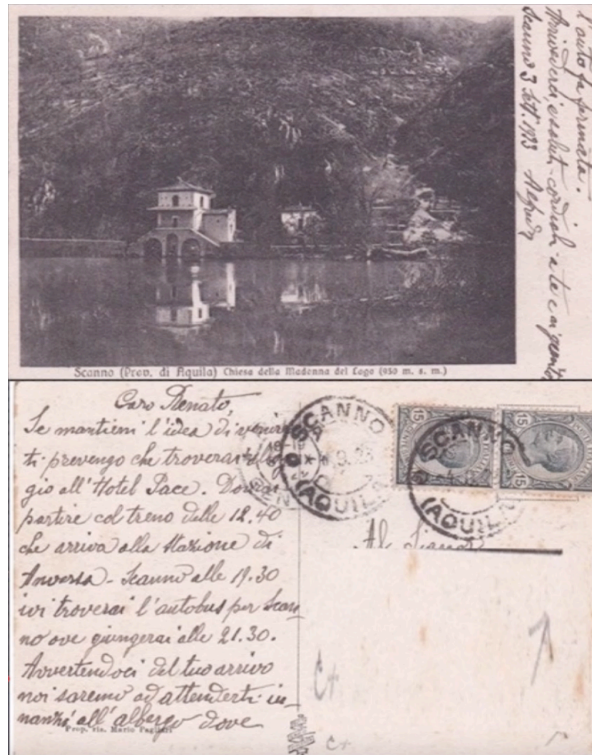 l'auto fa fermata.
Arrivederci e saluti cordiali a te e ai genitori
Scanno 3 Sett. 1923 Alfredo
Scanno (Prov. di Aquila) Chiesa della Madonna del Lago (930 m. s. m.)
Caro Renato,
Se mantieni l'idea di venire
ti prevengo che troverai
gio all'Hotel Pace. Dovrai
partire col treno delle 18.40
che arriva alla stazione di
Anversa - Scanno alle 19.30
ivi troverai l'autobus per Scan-
no ove giungerai alle 21.30.
Avvertendoci del tuo arrivo
noi saremo ad attenderti in-
nanzi all'albergo dove
Prop. ris. Mario
SCANNO
(AQUILA)
SCANNO
(AQUILA)
15
15
15
15
Al Signor